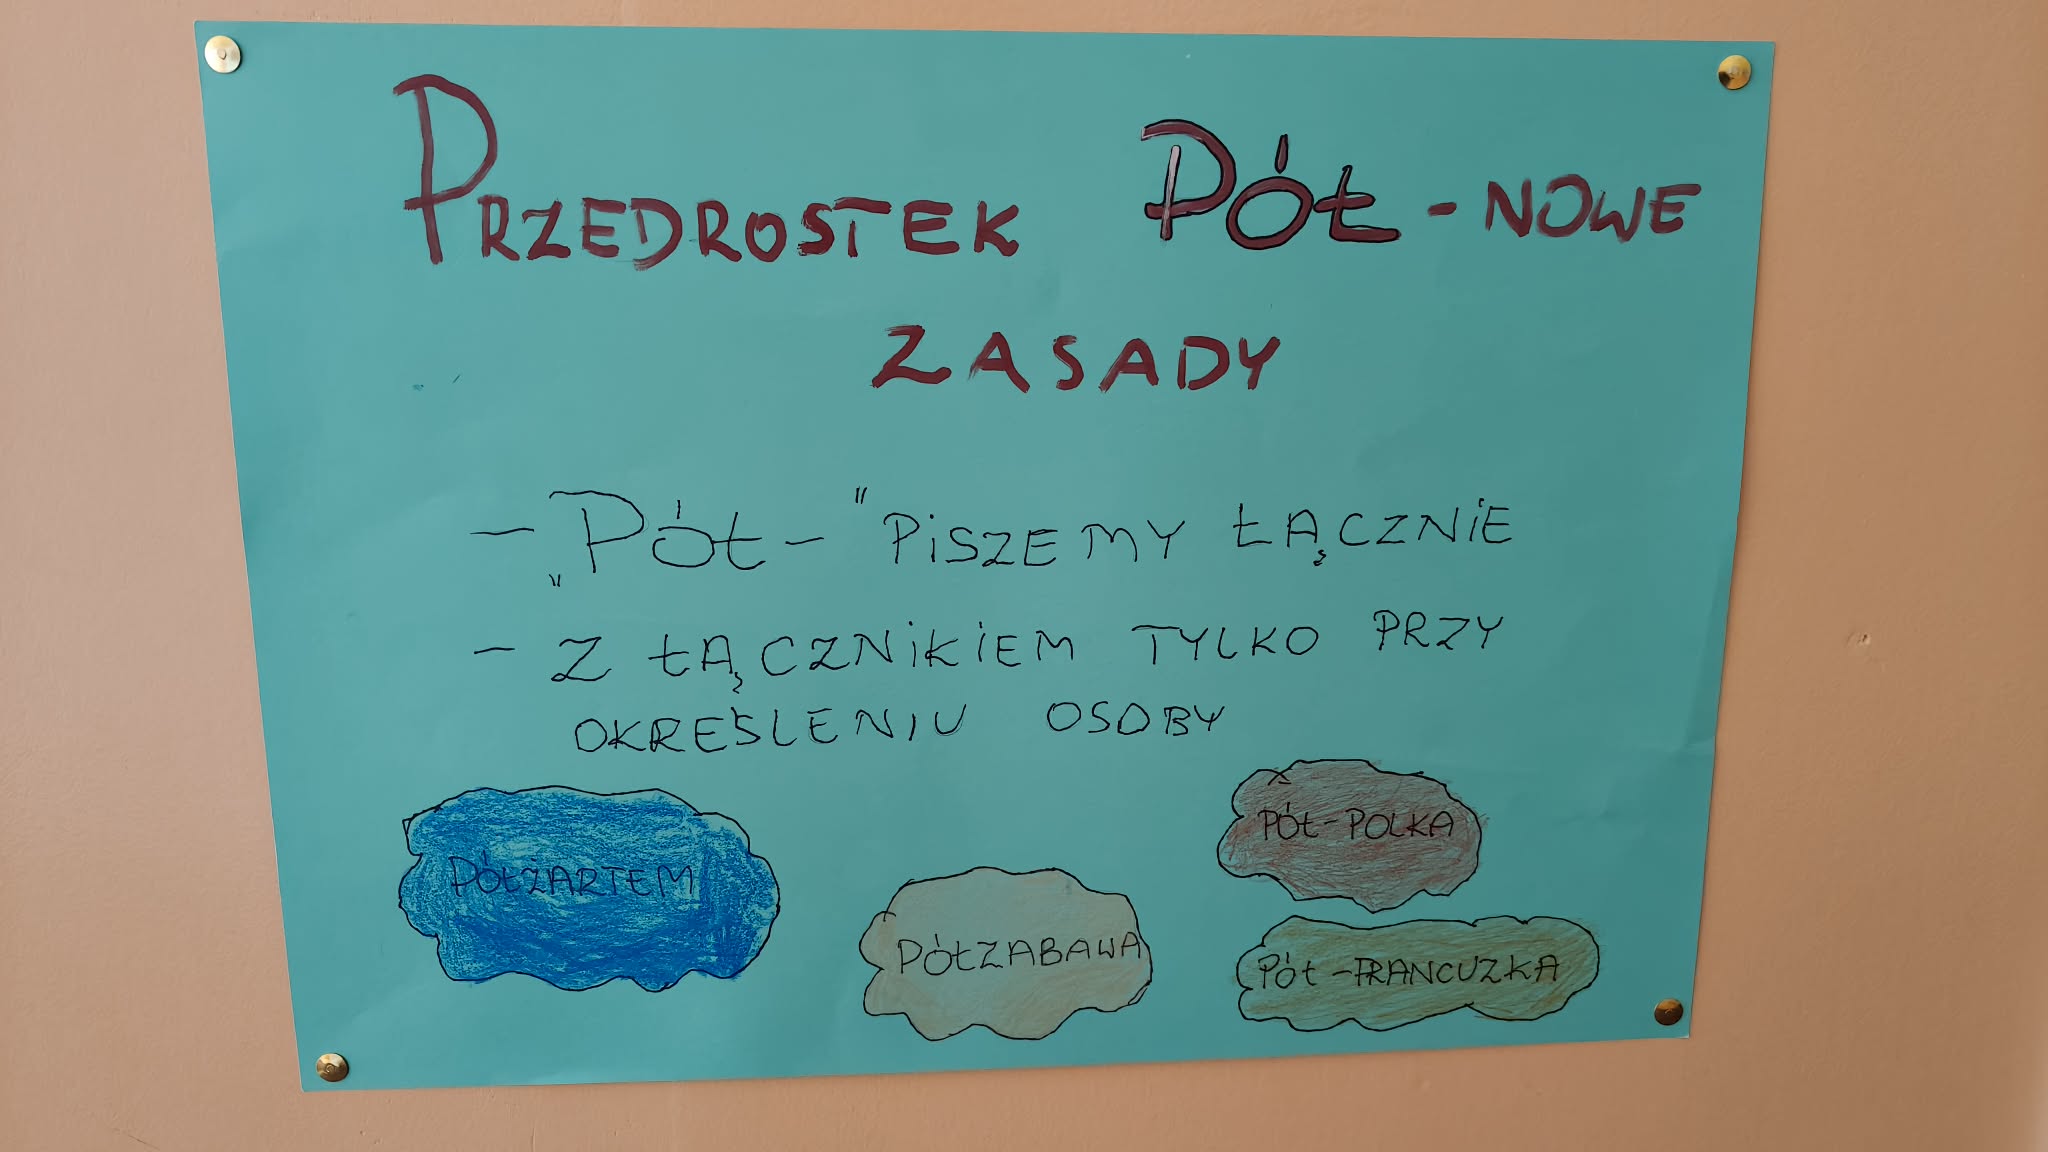 PRZEDROSTEK PÓŁ - NOWE
ZASADY
- „PÓŁ-" PISZEMY ŁĄCZNIE
- Z ŁĄCZNIKIEM TYLKO PRZY
OKREŚLENIU OSOBY
PÓŁŻARTEM
PÓŁZABAWA
PÓŁ-POLKA
PÓŁ-FRANCUZKA